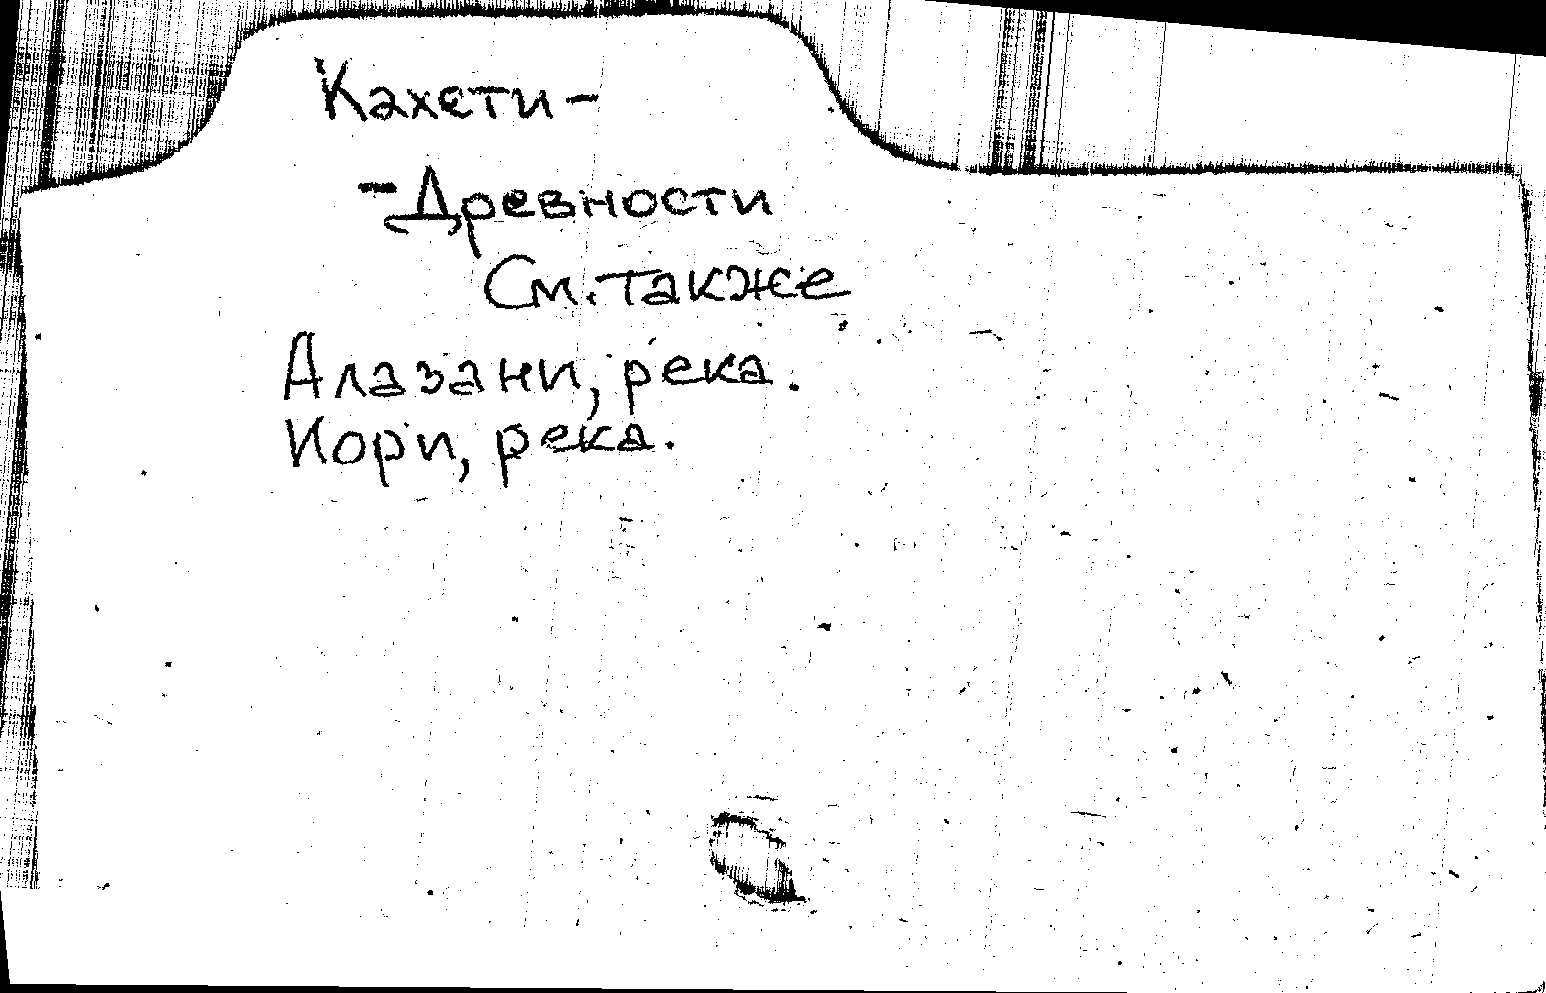 Кахети-
-Древности
См. также
Алазани, река.
Иори, река.